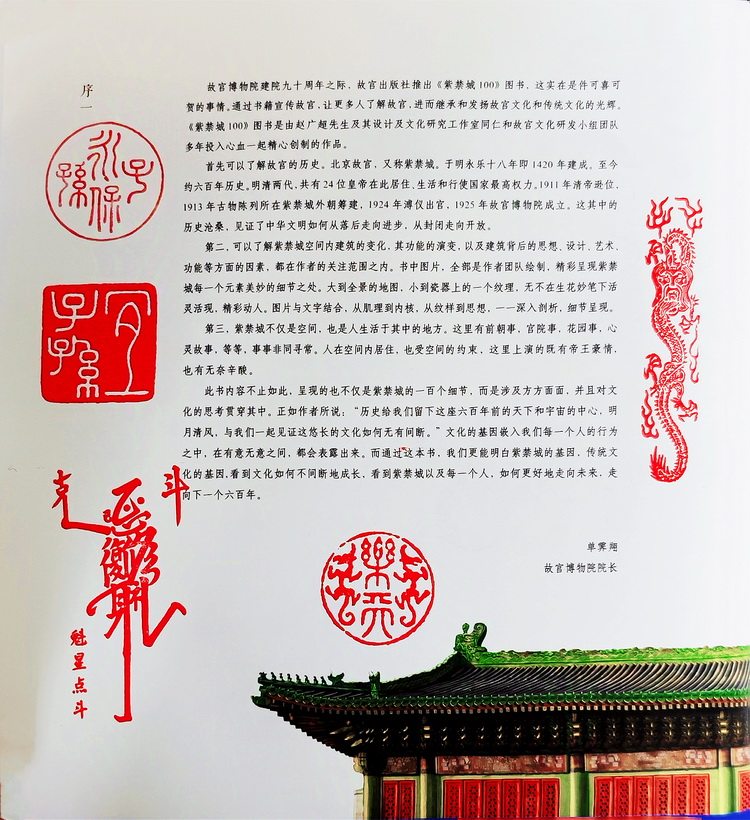 序一
故宫博物院建院九十周年之际，故宫出版社推出《紫禁城100》图书，这实在是件可喜可
贺的事情。通过书籍宣传故宫，让更多人了解故宫，进而继承和发扬故宫文化和传统文化的光辉。
《紫禁城100》图书是由赵广超先生及其设计及文化研究工作室同仁和故宫文化研发小组团队
多年投入心血一起精心创制的作品。
首先可以了解故宫的历史。北京故宫，又称紫禁城。于明永乐十八年即1420年建成，至今
约六百年历史。明清两代，共有24位皇帝在此居住、生活和行使国家最高权力。1911年清帝逊位，
1913年古物陈列所在紫禁城外朝筹建，1924年溥仪出宫，1925年故宫博物院成立。这其中的
历史沧桑，见证了中华文明如何从落后走向进步，从封闭走向开放。
第二，可以了解紫禁城空间内建筑的变化，其功能的演变，以及建筑背后的思想、设计、艺术、
功能等方面的因素，都在作者的关注范围之内。书中图片，全部是作者团队绘制，精彩呈现紫禁
城每一个元素美妙的细节之处。大到全景的地图，小到瓷器上的一个纹理，无不在生花妙笔下活
灵活现，精彩动人。图片与文字结合，从肌理到内核，从纹样到思想，一一深入剖析，细节呈现。
第三，紫禁城不仅是空间，也是人生活于其中的地方。这里有前朝事，宫院事，花园事，心
灵故事，等等，事事非同寻常。人在空间内居住，也受空间的约束，这里上演的既有帝王豪情，
也有无奈辛酸。
此书内容不止如此，呈现的也不仅是紫禁城的一百个细节，而是涉及方方面面，并且对文
化的思考贯穿其中。正如作者所说：“历史给我们留下这座六百年前的天下和宇宙的中心，明
月清风，与我们一起见证这悠长的文化如何无有间断。”文化的基因嵌入我们每一个人的行为
之中，在有意无意之间，都会表露出来。而通过这本书，我们更能明白紫禁城的基因，传统文
化的基因，看到文化如何不间断地成长，看到紫禁城以及每一个人，如何更好地走向未来，走
向下一个六百年。
单霁翔
故宫博物院院长
子孙永保
宜子孙
克
斗
魁星点斗
樂天